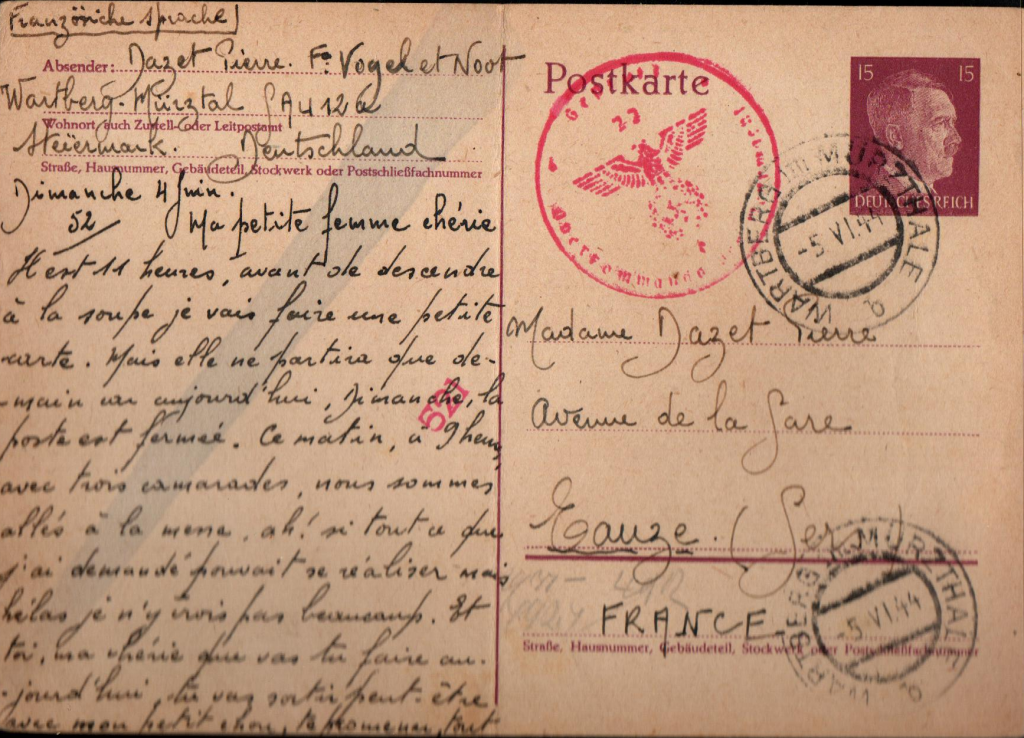 Französiche Sprache
Absender: Dazet Pierre. Fa Vogel et Noot
Wartberg-Mürztal
Wohnort, auch Zustell- oder Leitpostamt
Steiermark. Deutschland
Straße, Hausnummer, Gebäudeteil, Stockwerk oder Postschließfachnummer
Dimanche 4 Juin.
52 Ma petite femme chérie
Il est 11 heures, avant de descendre
à la soupe je vais faire une petite
carte. Mais elle ne partira que de-
-main car aujourd'hui, Dimanche, la
poste est fermée. Ce matin, à 9 heures,
avec trois camarades, nous sommes
allés à la messe, ah! si tout ce que
j'ai demandé pouvait se réaliser mais
hélas je n'y crois pas beaucoup. Et
toi, ma chérie que vas tu faire au-
-jourd'hui, tu vas sortir peut-être
avec mon petit chou, te promener, tout
521
Postkarte
15 15
DEUTSCHES REICH
22
Oberkommando
WARTBERG im MÜRZTHALE
-5.VI.44
b
Madame Dazet Pierre
Avenue de la Gare
Eauze. (Gers)
FRANCE
Straße, Hausnummer, Gebäudeteil, Stockwerk oder Postschließfachnummer
WARTBERG im MÜRZTHALE
-5.VI.44
b